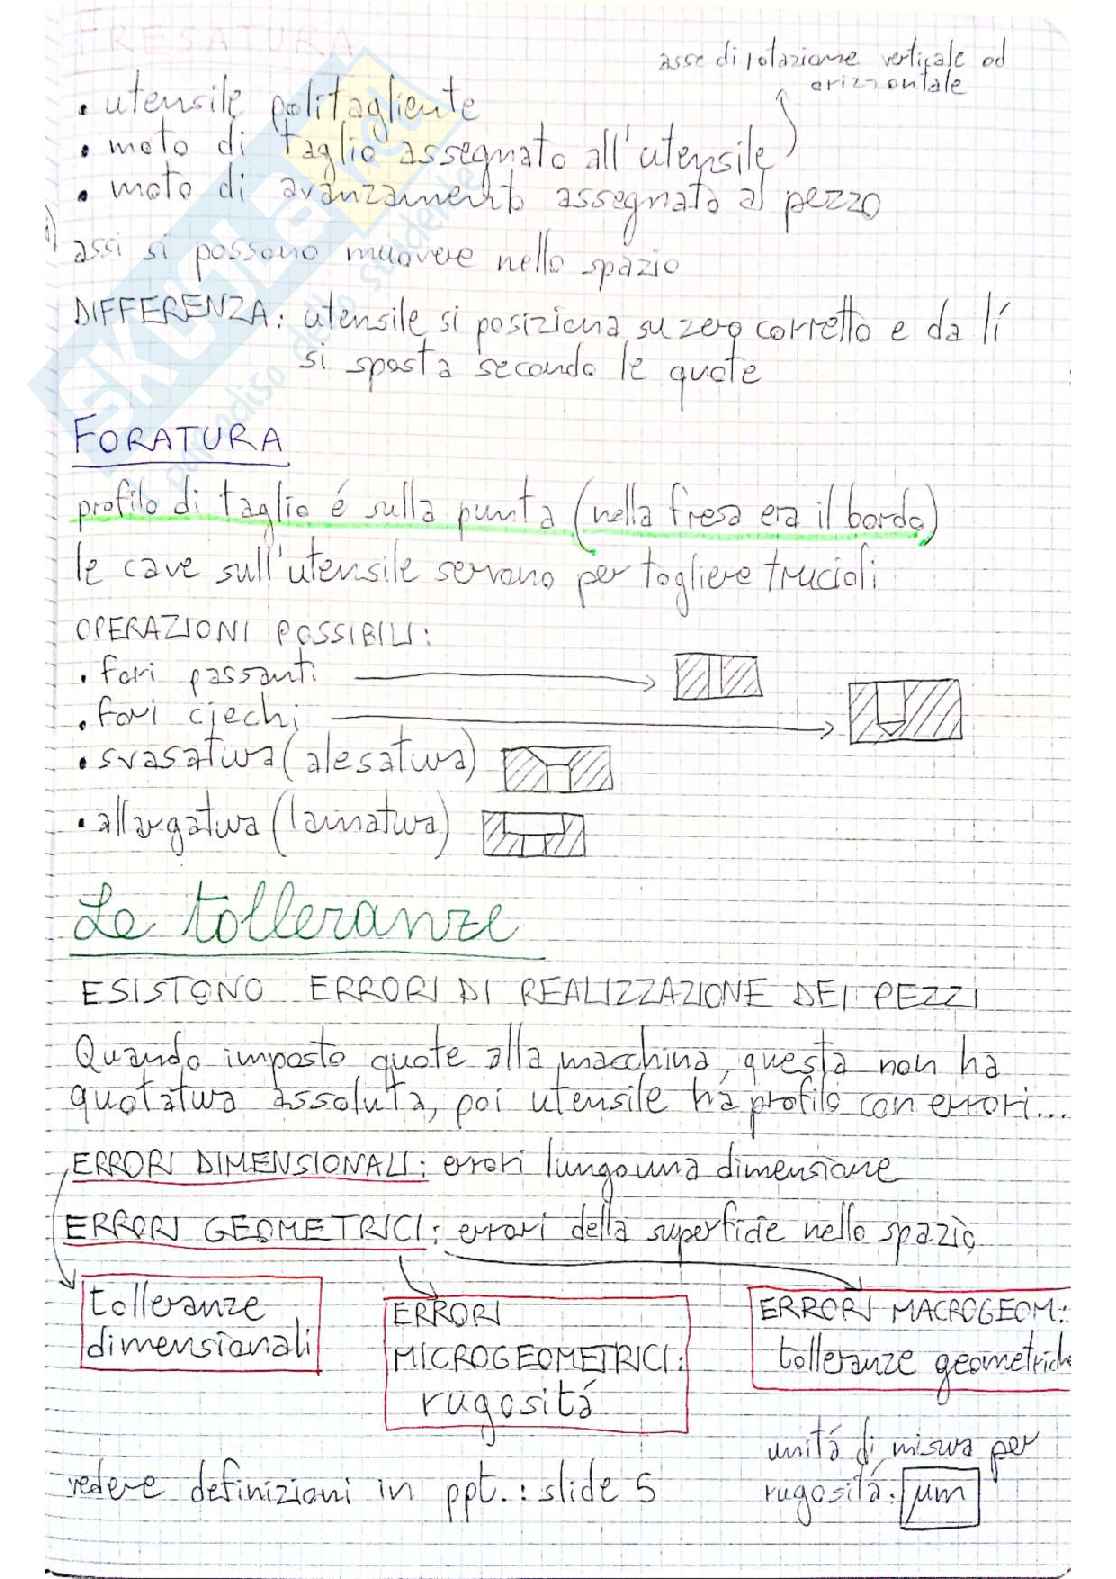 FRESATURA
asse di rotazione verticale od
orizzontale
• utensile politagliente
• moto di taglio assegnato all'utensile
• moto di avanzamento assegnato al pezzo
assi si possono muovere nello spazio
DIFFERENZA: utensile si posiziona su zero corretto e da lí
si sposta secondo le quote
FORATURA
profilo di taglio é sulla punta (nella fresa era il bordo)
le cave sull'utensile servono per togliere trucioli
OPERAZIONI POSSIBILI:
• fori passanti
• fori ciechi
• svasatura (alesatura)
• allargatura (lamatura)
Le tolleranze
ESISTONO ERRORI DI REALIZZAZIONE DEI PEZZI
Quando imposto quote alla macchina, questa non ha
quotatura assoluta, poi utensile ha profilo con errori...
ERRORI DIMENSIONALI: errori lungo una dimensione
ERRORI GEOMETRICI: errori della superficie nello spazio
tolleranze
dimensionali
ERRORI
MICROGEOMETRICI:
rugositá
ERRORI MACROGEOM.:
tolleranze geometriche
vedere definizioni in ppt.: slide 5
unitá di misura per
rugositá: µm
SKUOLA.net
paradiso dello studente